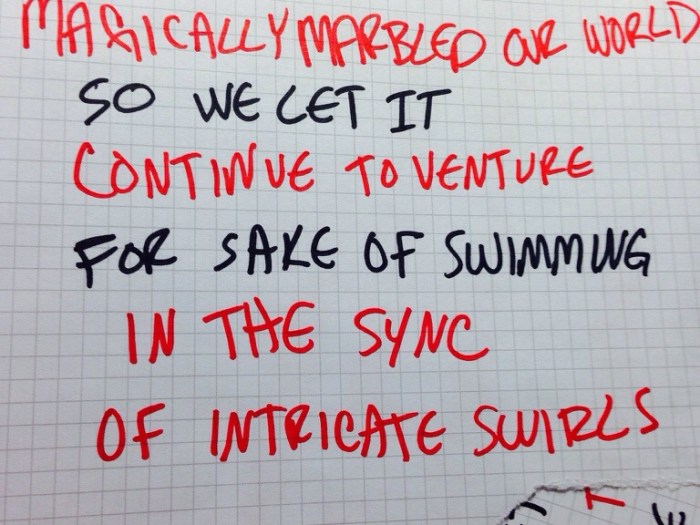 MAGICALLY MARBLED OUR WORLD
SO WE LET IT
CONTINUE TO VENTURE
FOR SAKE OF SWIMMING
IN THE SYNC
OF INTRICATE SWIRLS